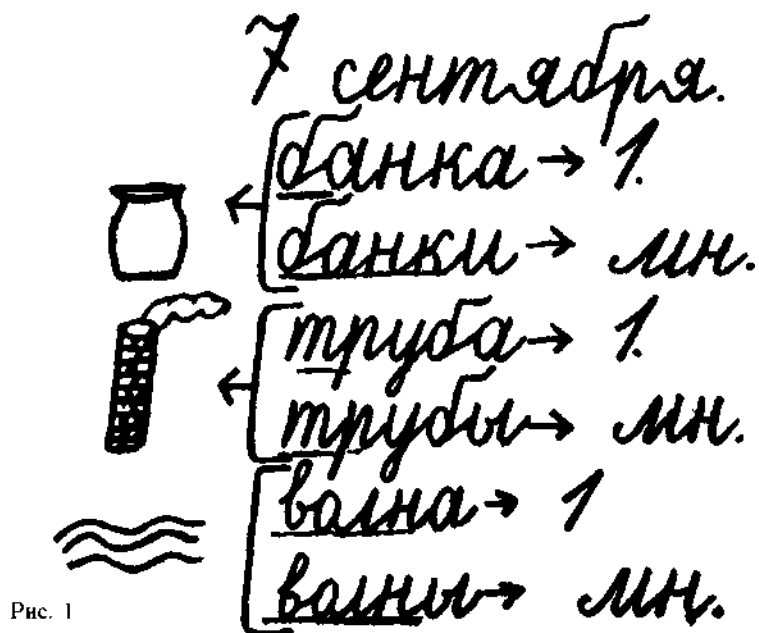 7 сентября.
банка → 1.
банки → мн.
труба → 1.
трубы → мн.
волна → 1
волны → мн.
Рис. 1